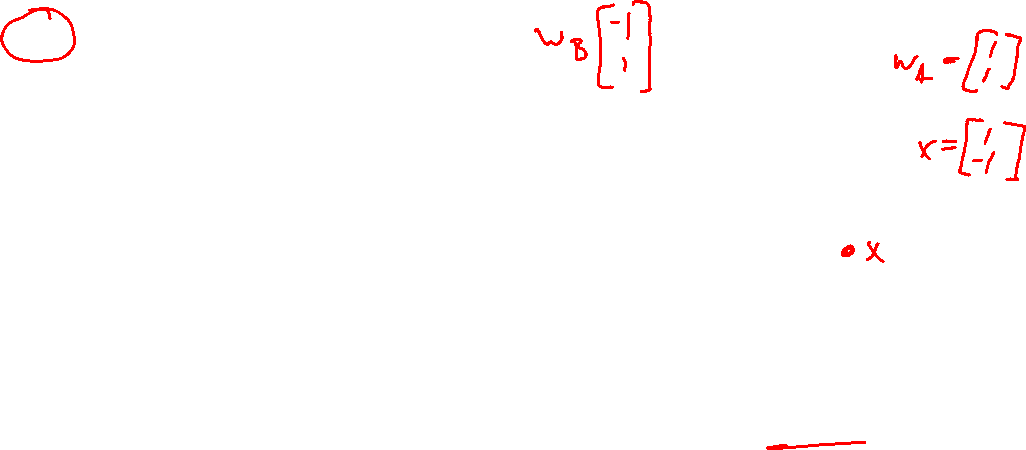 w_B [-1
1]
w_A = [1
1]
x = [1
-1]
x